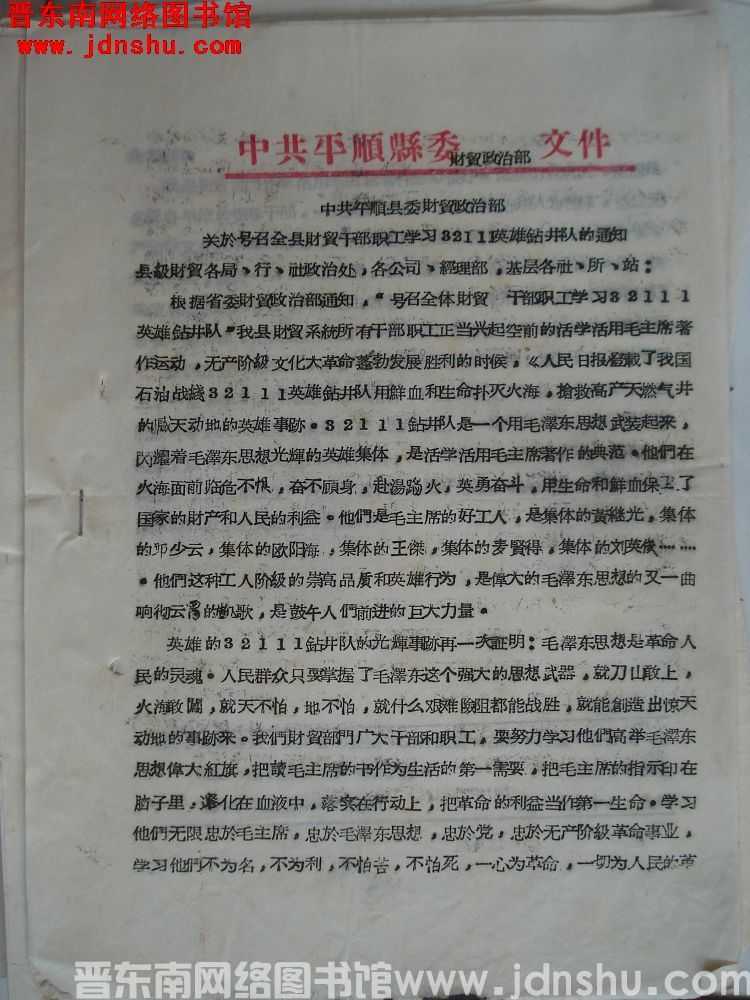 晋东南网络图书馆
www.jdnshu.com
中共平順縣委財貿政治部 文件
中共平順县委財貿政治部
关於号召全县財貿干部职工学习32111英雄鈷井队的通知
县級財貿各局、行、社政治处，各公司、經理部，基层各社、所、站：
根据省委財貿政治部通知，“号召全体財貿 干部职工学习32111
英雄鈷井队。我县財貿系統所有干部职工正当兴起空前的活学活用毛主席著
作运动，无产阶級文化大革命蓬勃发展胜利的时候，《人民日报登載了我国
石油战綫32111英雄鈷井队用鮮血和生命扑灭火海，搶救高产天然气井
的感天动地的英雄事跡。32111鈷井队是一个用毛澤东思想武装起来，
闪耀着毛澤东思想光輝的英雄集体，是活学活用毛主席著作的典范。他們在
火海面前临危不惧，奋不顾身，赴湯蹈火，英勇奋斗，用生命和鮮血保卫了
国家的財产和人民的利益。他們是毛主席的好工人，是集体的黄継光，集体
的邓少云，集体的欧阳海，集体的王傑，集体的麦賢得，集体的刘英俊……
。他們这种工人阶級的崇高品質和英雄行为，是偉大的毛澤东思想的又一曲
响彻云霄的凱歌，是鼓午人們前进的巨大力量。
英雄的32111鈷井队的光輝事跡再一次証明：毛澤东思想是革命人
民的灵魂。人民群众只要掌握了毛澤东这个强大的思想武器，就刀山敢上，
火海敢闖，就天不怕，地不怕，就什么艰难險阻都能战胜，就能創造出惊天
动地的事跡来。我們財貿部門广大干部和职工，要努力学习他們高举毛澤东
思想偉大紅旗，把讀毛主席的书作为生活的第一需要，把毛主席的指示印在
脑子里，溶化在血液中，落实在行动上，把革命的利益当作第一生命。学习
他們无限忠於毛主席，忠於毛澤东思想，忠於党，忠於无产阶級革命事业，
学习他們不为名，不为利，不怕苦，不怕死，一心为革命，一切为人民的革
晋东南网络图书馆www.jdnshu.com